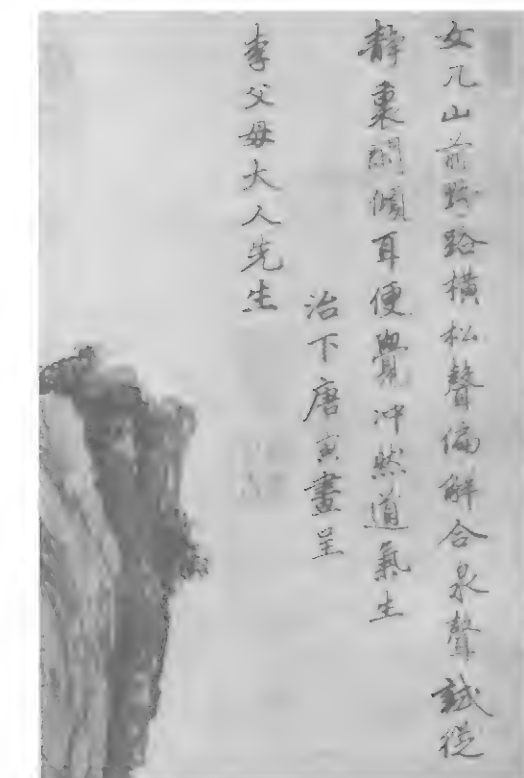 女几山前野路橫松聲偏解合泉聲試從
靜裏閒傾耳便覺冲然道氣生
治下唐寅畫呈
李父母大人先生